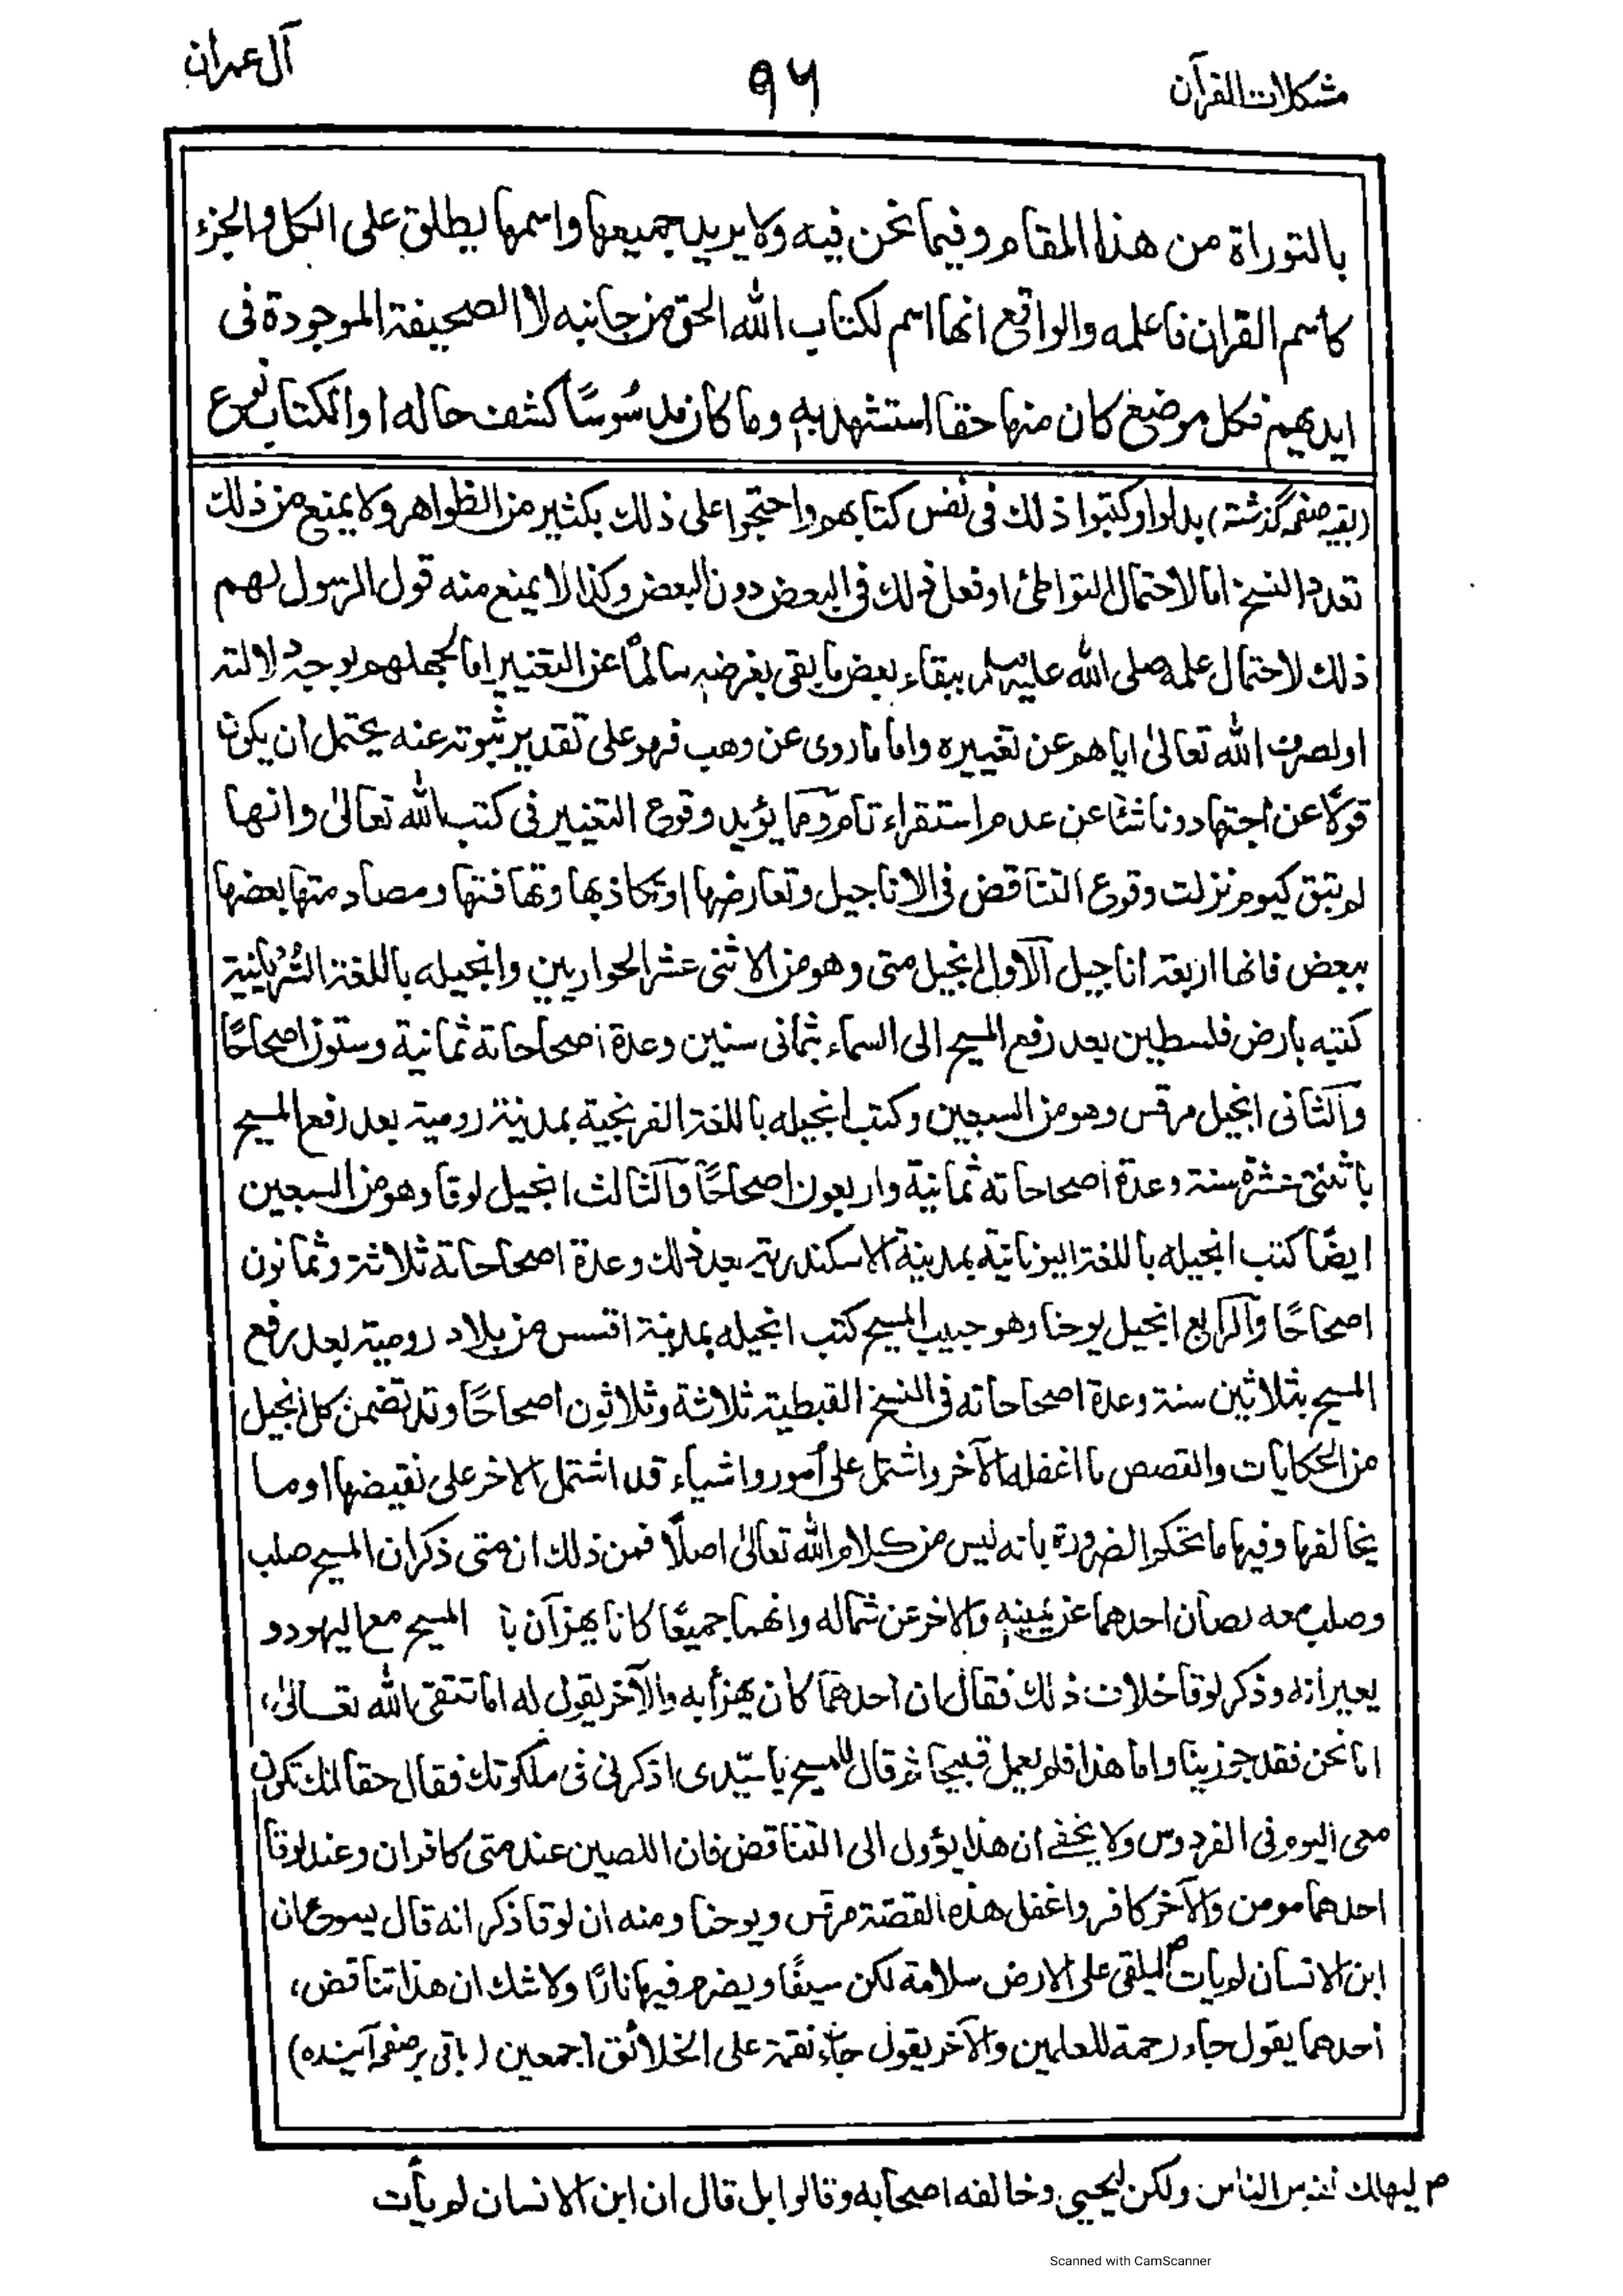 مشكلات القرآن
٩٦
آل عمران
بالتوراة من هذا المقام وفيما نحن فيه ولا يريد جميعها واسمها يطلق على الكل والجزء
كاسم القران فاعلمه والواقع انها اسم لكتاب الله الحق من جانبه لا الصحيفة الموجودة فى
ايديهم فكل موضع كان منها حقا استشهد به وما كان مدسوسًا كشف حاله او الكتاب نوع
(بقیہ صفحہ گذشتہ) بدلوا وكتبوا ذلك فى نفس كتابهم واحتجوا على ذلك بكثير من الظواهر ولا يمنع من ذلك
تعدد النسخ اما لاحتمال التواطئ او فعل ذلك فى البعض دون البعض وكذا لا يمنع منه قول الرسول لهم
ذلك لاحتمال علمه صلى الله عليه وسلم ببقاء بعض ما يفى بغرضه سالمًا عن التغيير اما لجهلهم بوجه دلالته
او لصرف الله تعالىٰ اياهم عن تغييره واما ما روى عن وهب فهو على تقدير ثبوته عنه يحتمل ان يكون
قولًا عن اجتهاد و ناشئا عن عدم استقراء تام ومما يؤيد وقوع التغيير فى كتب الله تعالىٰ وانها
لم تبق كيوم نزلت وقوع التناقض فى الاناجيل وتعارضها وتكاذبها وتهافتها ومصادمتها بعضها
ببعض فانها اربعة اناجيل الاول انجيل متى وهو من الاثنى عشر الحواريين وانجيله باللغة السُّريانية
كتبه بارض فلسطين بعد رفع المسيح الى السماء بثمانى سنين وعدة اصحاحاته ثمانية وستون اصحاحًا
والثانى انجيل مرقس وهو من السبعين وكتب انجيله باللغة الفرنجية بمدينة رومية بعد رفع المسيح
باثنتى عشرة سنة وعدة اصحاحاته ثمانية واربعون اصحاحًا والثالث انجيل لوقا وهو من السبعين
ايضًا كتب انجيله باللغة اليونانية بمدينة الاسكندرية بعد ذلك وعدة اصحاحاته ثلاثة وثمانون
اصحاحًا والرابع انجيل يوحنا وهو حبيب المسيح كتب انجيله بمدينة افسس من بلاد رومية بعد رفع
المسيح بثلاثين سنة وعدة اصحاحاته فى النسخ القبطية ثلاثة وثلاثون اصحاحًا وقد تضمن كل انجيل
من الحكايات والقصص ما اغفله الآخر واشتمل على أمور واشياء قد اشتمل الاخر على نقيضها او ما
يخالفها وفيها ما تحكم الضرورة بانه ليس من كلام الله تعالىٰ اصلًا فمن ذلك ان متى ذكر ان المسيح صلب
وصلب معه لصان احدهما عن يمينه والاخر عن شماله وانهما جميعًا كانا يهزآن با المسيح مع اليهود و
يعيرانه وذكر لوقا خلاف ذلك فقال ان احدهما كان يهزأ به والآخر يقول له اما تتقى الله تعالىٰ،
اما نحن فقد جوزينا واما هذا فلم يعمل قبيحا ثم قال للمسيح يا سيّدى اذكرنى فى ملكوتك فقال حقا انك تكون
معى اليوم فى الفردوس ولا يخفى ان هذا يؤول الى التناقض فان اللصين عند متى كافران وعند لوقا
احدهما مومن والآخر كافر واغفل هذه القصّة مرقس ويوحنا ومنه ان لوقا ذكر انه قال يسوع ان
ابن الانسان لم يأت م ليلقى على الارض سلامة لكن سيفًا ويضرم فيها نارًا ولا شك ان هذا تناقض،
احدهما يقول جاء رحمة للعلمين والآخر يقول جاء نقمة على الخلائق اجمعين (باقی بر صفحہ آیندہ)
م ليهلك نفوس الناس ولكن ليحيى وخالفه اصحابه وقالوا بل قال ان ابن الانسان لم يأت
Scanned with CamScanner